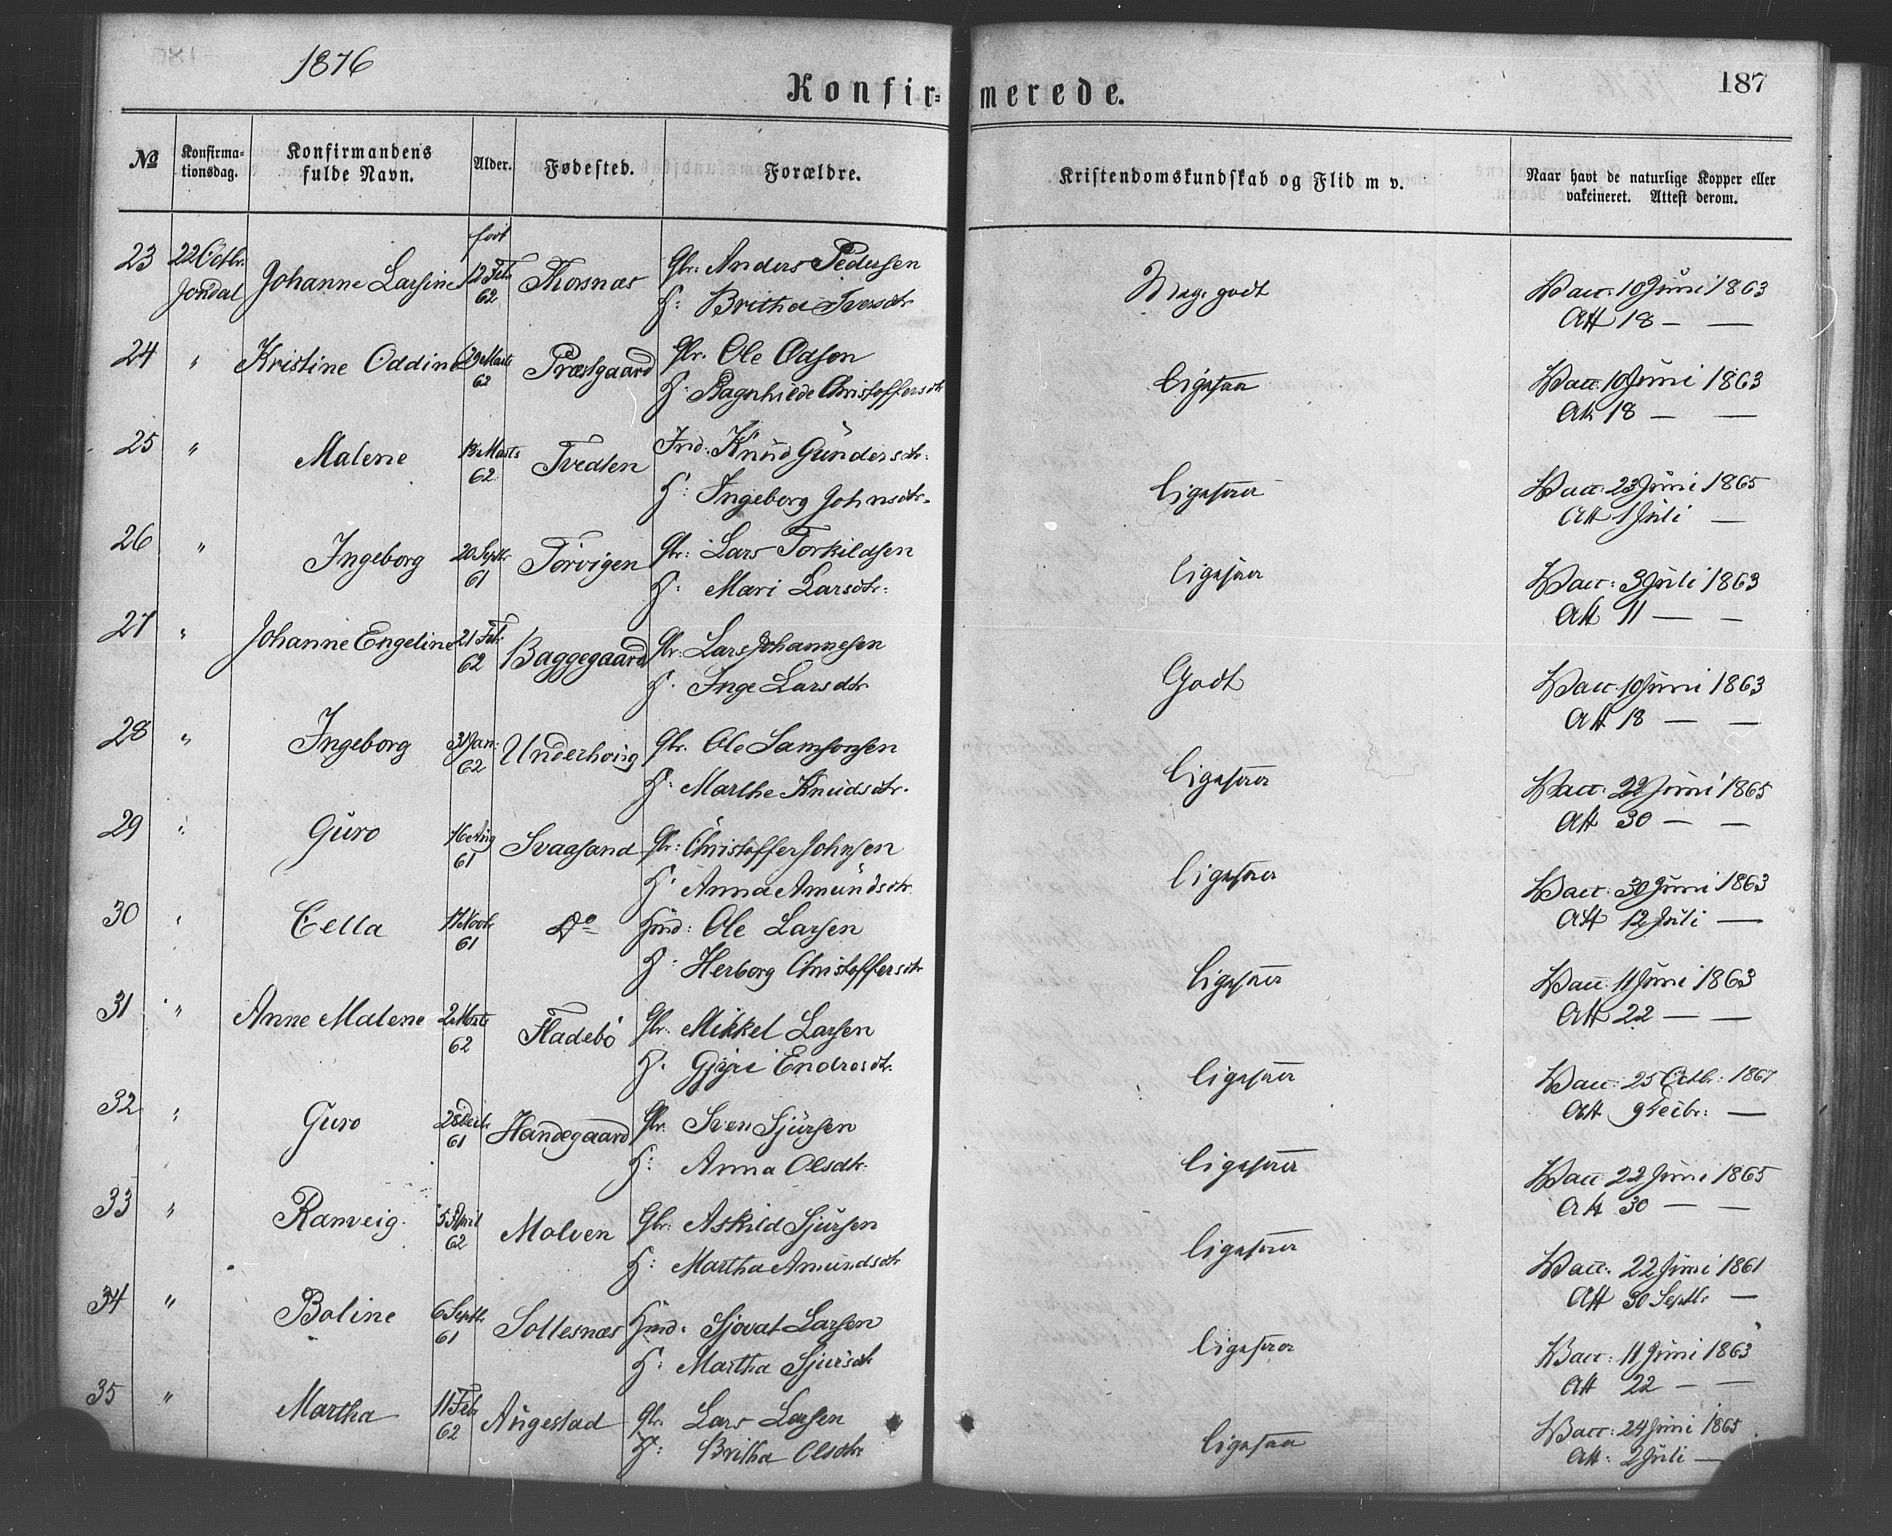 1876
187
Konfirmerede.
No
Konfirma-
tionsdag.
Konfirmandens
fulde Navn.
Alder.
Fødested.
Forældre.
Kristendomskundskab og Flid m v.
Naar havt de naturlige Kopper eller
vakcineret. Attest derom.
født
23 22 Octbr. Johanne Larsine 12 Feb. Thorsnæs Gbr: Anders Pedersen Meg. godt Vacc: 10 Juni 1863
Jondal 62 H: Britha Iversdtr Att 18 — —
24 " Kristine Oddine 29 Marts Præstgaard Gbr. Ole Odson ligesaa Vacc. 10 Juni 1863
62 H: Ragnhilde Christoffersdtr Att 18 — —
25 " Malene Marts Tvedten Ind: Knud Gundersdtr. ligesaa Vacc: 23 Juni 1865
62 H: Ingeborg Johnsdtr. Att 1 Juli —
26 " Ingeborg 20 Septbr Torvigen Gbr: Lars Torkildsen ligesaa Vacc: 3 Juli 1863
61 H: Mari Larsdtr. Att 11 — —
27 " Johanne Engeline 21 Feb. Baggegaard Gbr: Lars Johannesen Godt Vacc. 10 Juni 1863
62 H. Inge Larsdtr. Att 18 — —
28 " Ingeborg 31 Jan: Underhoug Gbr. Ole Samsonsen ligesaa Vacc: 22 Juni 1865
62 H. Marthe Knudsdtr. Att 30 — —
29 " Guro 16 Aug Svaasand Gbr: Christoffer Johnsen ligesaa Vacc: 30 Juni 1863
61 H. Anna Amundsdtr. Att 12 Juli —
30 " Cella 17 Novb. Do Hmd: Ole Larsen ligesaa Vacc 11 Juni 1863
61 H: Herborg Christoffersdtr Att 22 — —
31 " Anne Malene 2 Marts Fladebø Gbr. Mikkel Larsen ligesaa Vacc: 25 Octbr: 1867
62 H. Gjyri Endresdtr. Att 9 Decbr: —
32 " Guro 28 Decb. Handegaard Gbr. Sven Sjursen ligesaa Vacc 22 Juni 1865
61 H: Anna Olsdtr. Att 30 — —
33 " Ranveig. 5 April Molven Gbr: Askild Sjursen ligesaa Vacc. 22 Juni 1861
62 H: Martha Amundsdtr Att 30 Septbr —
34 " Boline 6 Septb. Sollesnæs Hmd. Sjovat Larsen ligesaa Vacc: 11 Juni 1863
61 H: Martha Sjursdtr Att 22 — —
35 " Martha 11 Feb Augestad Gbr. Lars Larsen ligesaa Vacc: 24 Juni 1865
62 H: Britha Olsdtr. Att: 2 Juli —